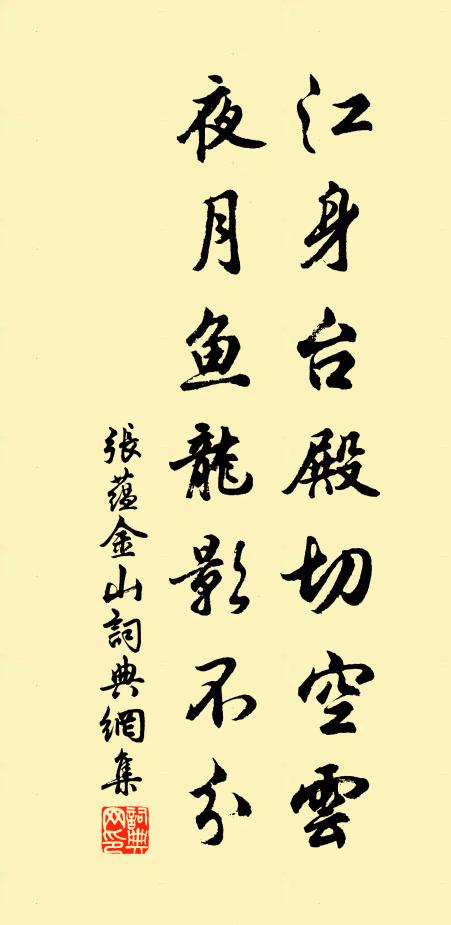 江身台殿切空雲
夜月鱼龍影不分
張蕴金山詞典網集
詞典网印